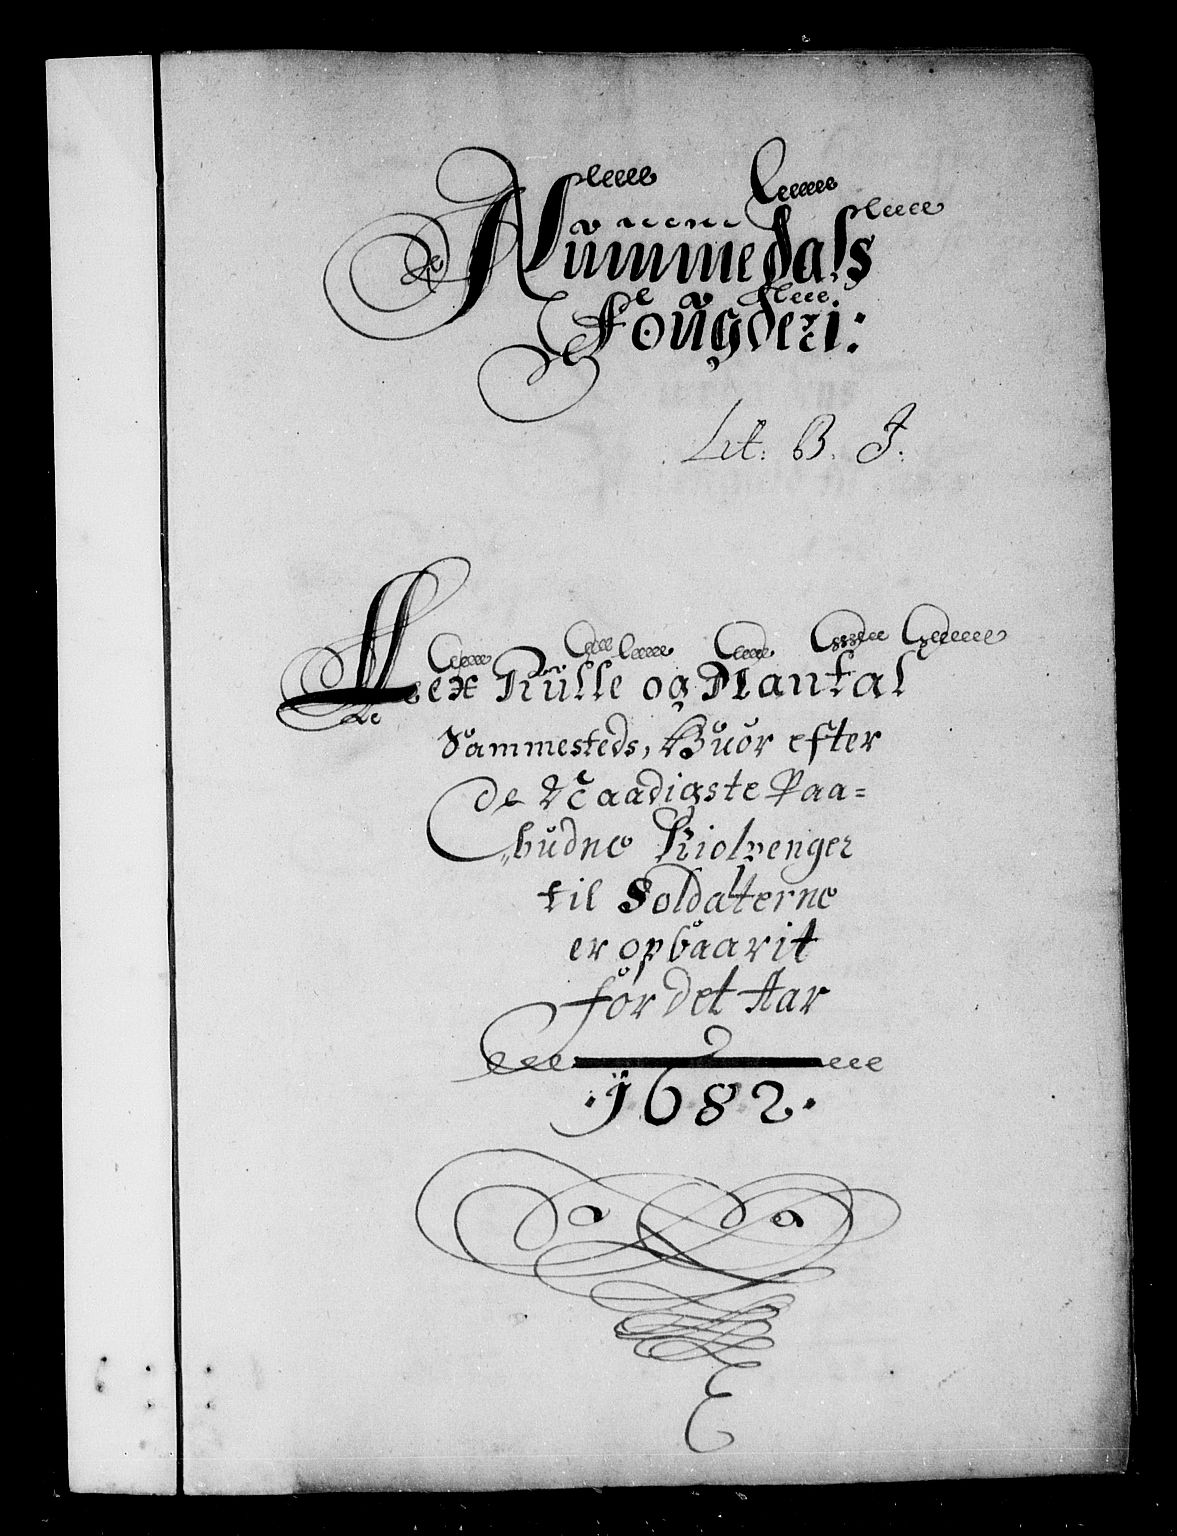 Nummedals
Fougderi:
Lit: B. J.
Lex Rulle og Mantal
Sammesteds, Huor efter
De Naadigste Paa=
budne Kiolpenger
til Soldaterne
er opbaarit
for det Aar
1682.